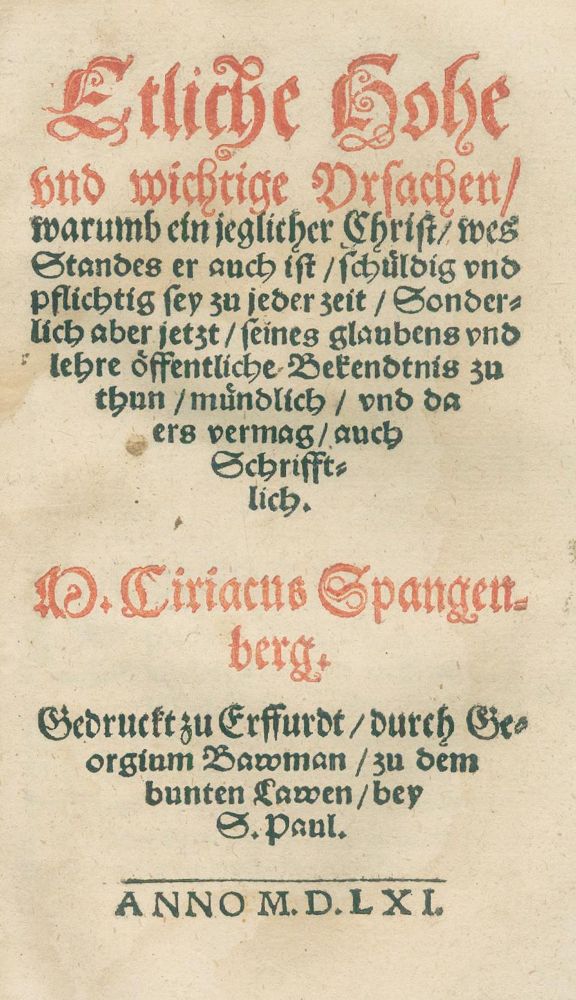 Etliche Hohe
vnd wichtige Vrſachen/
warumb ein jeglicher Chriſt/ wes
Standes er auch iſt / ſchüldig vnd
pflichtig ſey zu jeder zeit / Sonder⸗
lich aber jetzt / ſeines glaubens vnd
lehre öffentliche Bekendtnis zu
thun / mündlich / vnd da
ers vermag / auch
Schrifft⸗
lich.
M. Ciriacus Spangen⸗
berg.
Gedruckt zu Erffurdt / durch Ge⸗
orgium Bawman / zu dem
bunten Lawen / bey
S. Paul.
ANNO M. D. LXI.